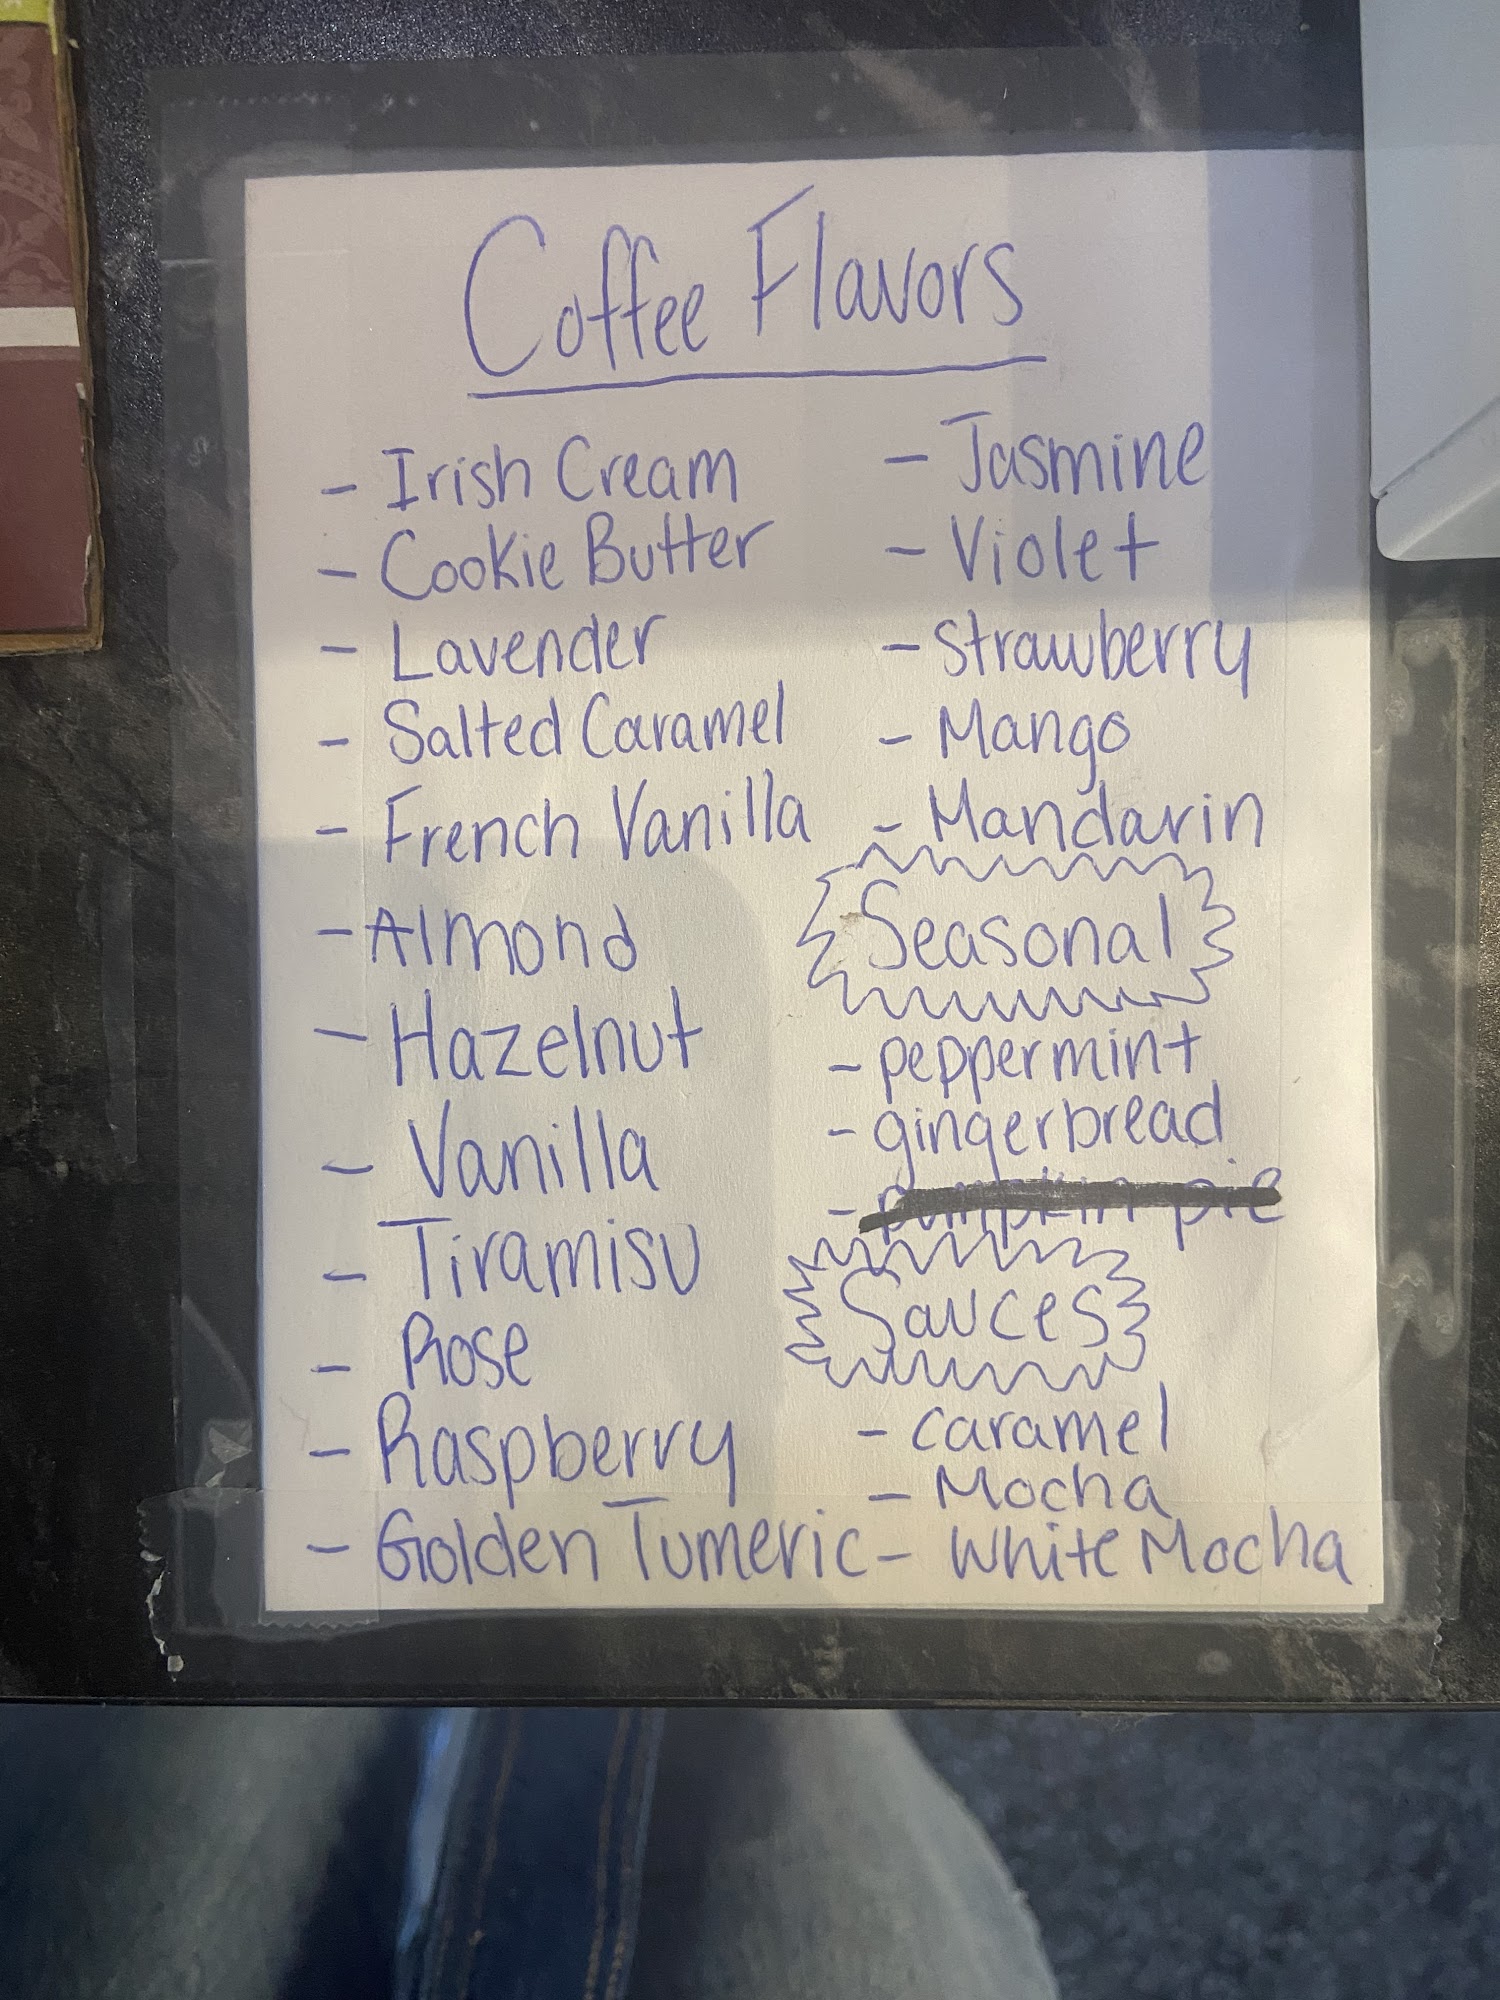 Coffee Flavors
- Irish Cream
- Cookie Butter
- Lavender
- Salted Caramel
- French Vanilla
- Almond
- Hazelnut
- Vanilla
- Tiramisu
- Rose
- Raspberry
- Golden Tumeric
- Jasmine
- Violet
- Strawberry
- Mango
- Mandarin
Seasonal
- peppermint
- gingerbread
- pumpkin pie
Sauces
- caramel
- Mocha
- White Mocha